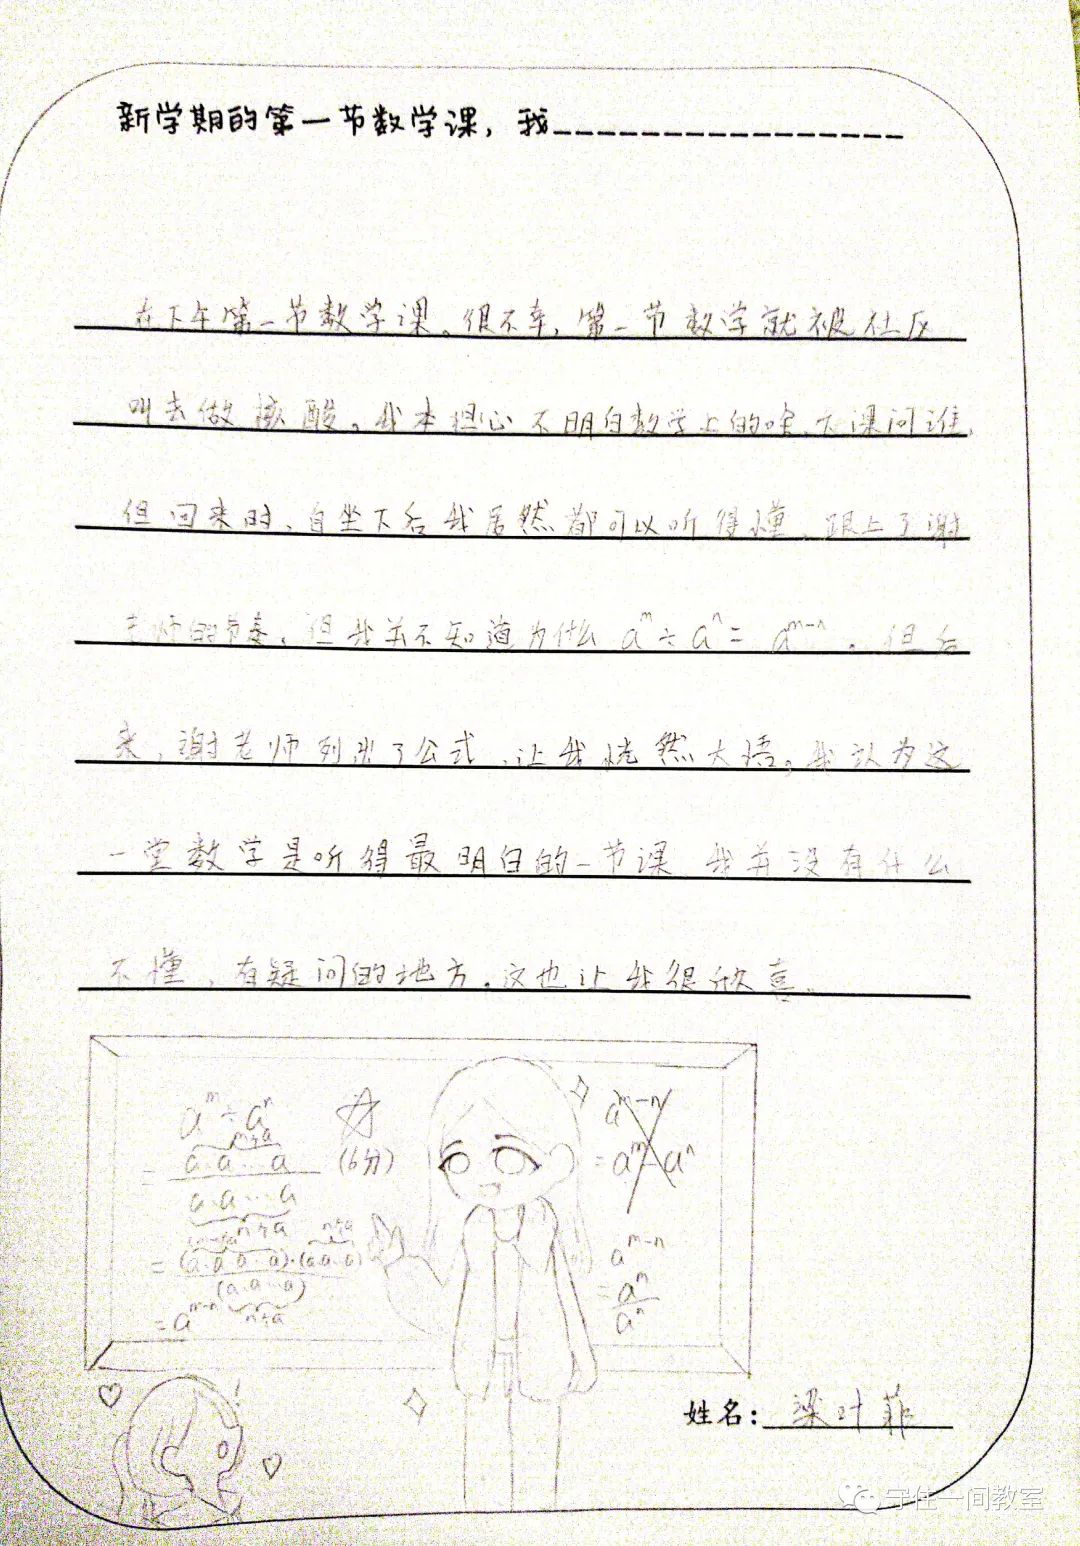 新学期的第一节数学课，我
在下午第一节数学课。很不幸，第一节数学就被社区
叫去做核酸。我本担心不明白数学上的啥，下课问谁，
但回来时，自坐下后我居然都可以听得懂，跟上了谢
老师的节奏，但我并不知道为什么 aᵐ÷aⁿ= aᵐ⁻ⁿ。但后
来，谢老师列出了公式，让我恍然大悟。我认为这
一堂数学是听得最明白的一节课 我并没有什么
不懂，有疑问的地方，这也让我很欣喜。
aᵐ÷aⁿ
m个a
= a·a…a
a·a…a
n个a
(6分)
n个a
= (a·a·a…a)·(a·a·a)
(a·a…a)
n个a
= aᵐ⁻ⁿ
aᵐ⁻ⁿ
= aᵐ-aⁿ
aᵐ⁻ⁿ
= aᵐ
aⁿ
姓名: 梁叶菲
守住一间教室